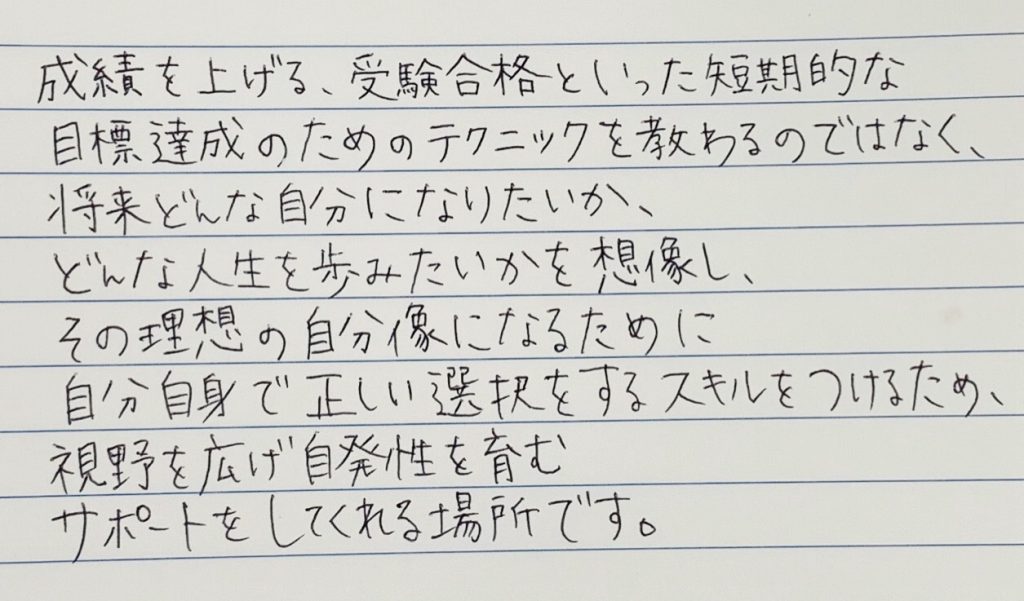 成績を上げる、受験合格といった短期的な
目標達成のためのテクニックを教わるのではなく、
将来どんな自分になりたいか、
どんな人生を歩みたいかを想像し、
その理想の自分像になるために
自分自身で正しい選択をするスキルをつけるため、
視野を広げ自発性を育む
サポートをしてくれる場所です。